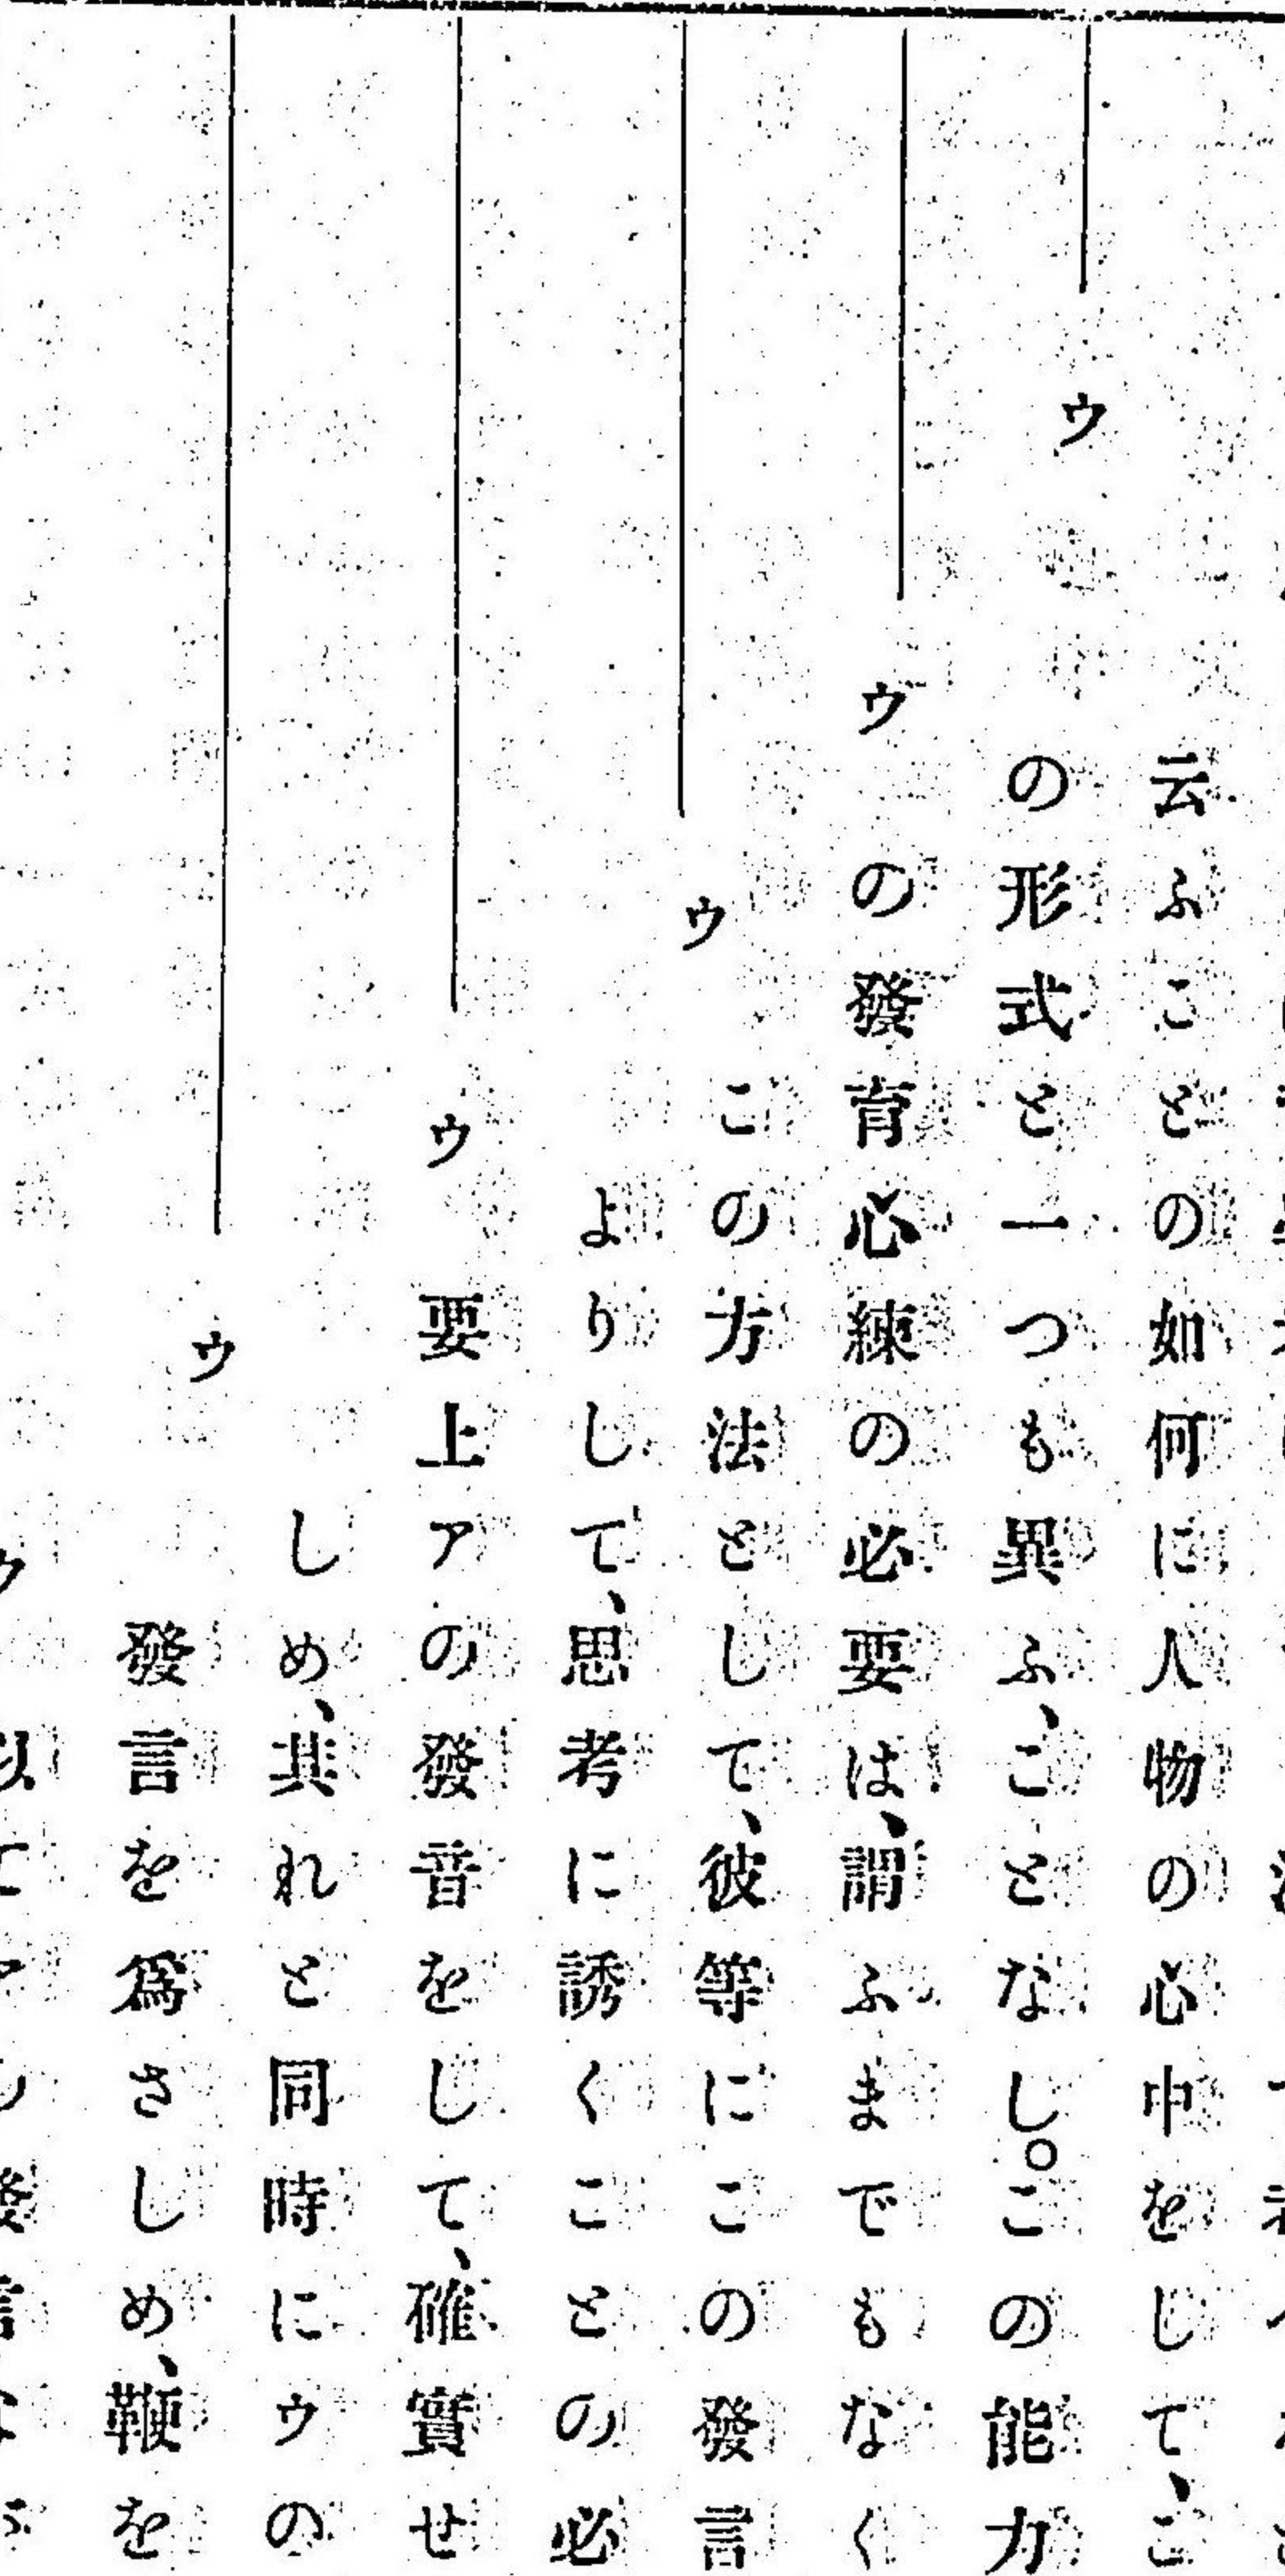 云ふことの如何に人物の心中をじして、こ
ウ
の形式と一つも異ふ、ことなし。この能力
ウ
の發育心練の必要は、謂ふまでもなく
ウ
この方法として、彼等にこの發言
よりして、思考に誘くことの必
ウ
要上アの發音をして、確實せ
しめ、共れと同時にウの
ウ
發言を爲さしめ、鞭を
ウ